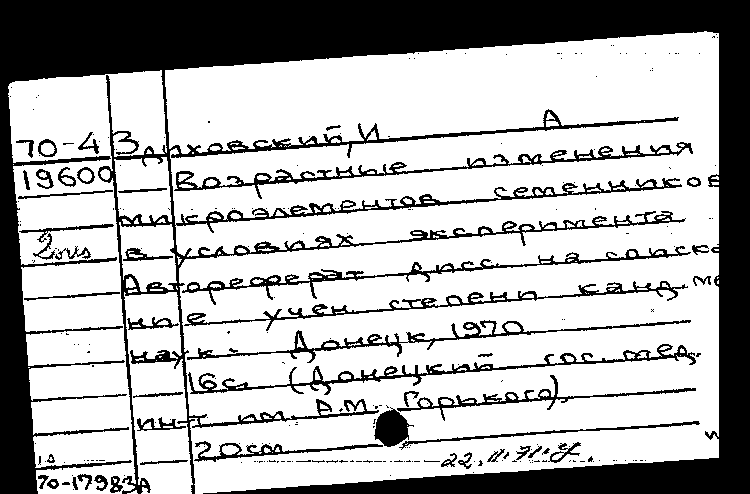 70-4 Здиховский, И. А
19600 Возрастные изменения
микроэлементов семенников
2 в условиях эксперимента
Автореферат дисс. на соиска
ние учен. степени канд. ме
наук. Донецк, 1970.
16с. (Донецкий гос. мед.
ин-т им. А.М. Горького).
20см
22.
70-17983А